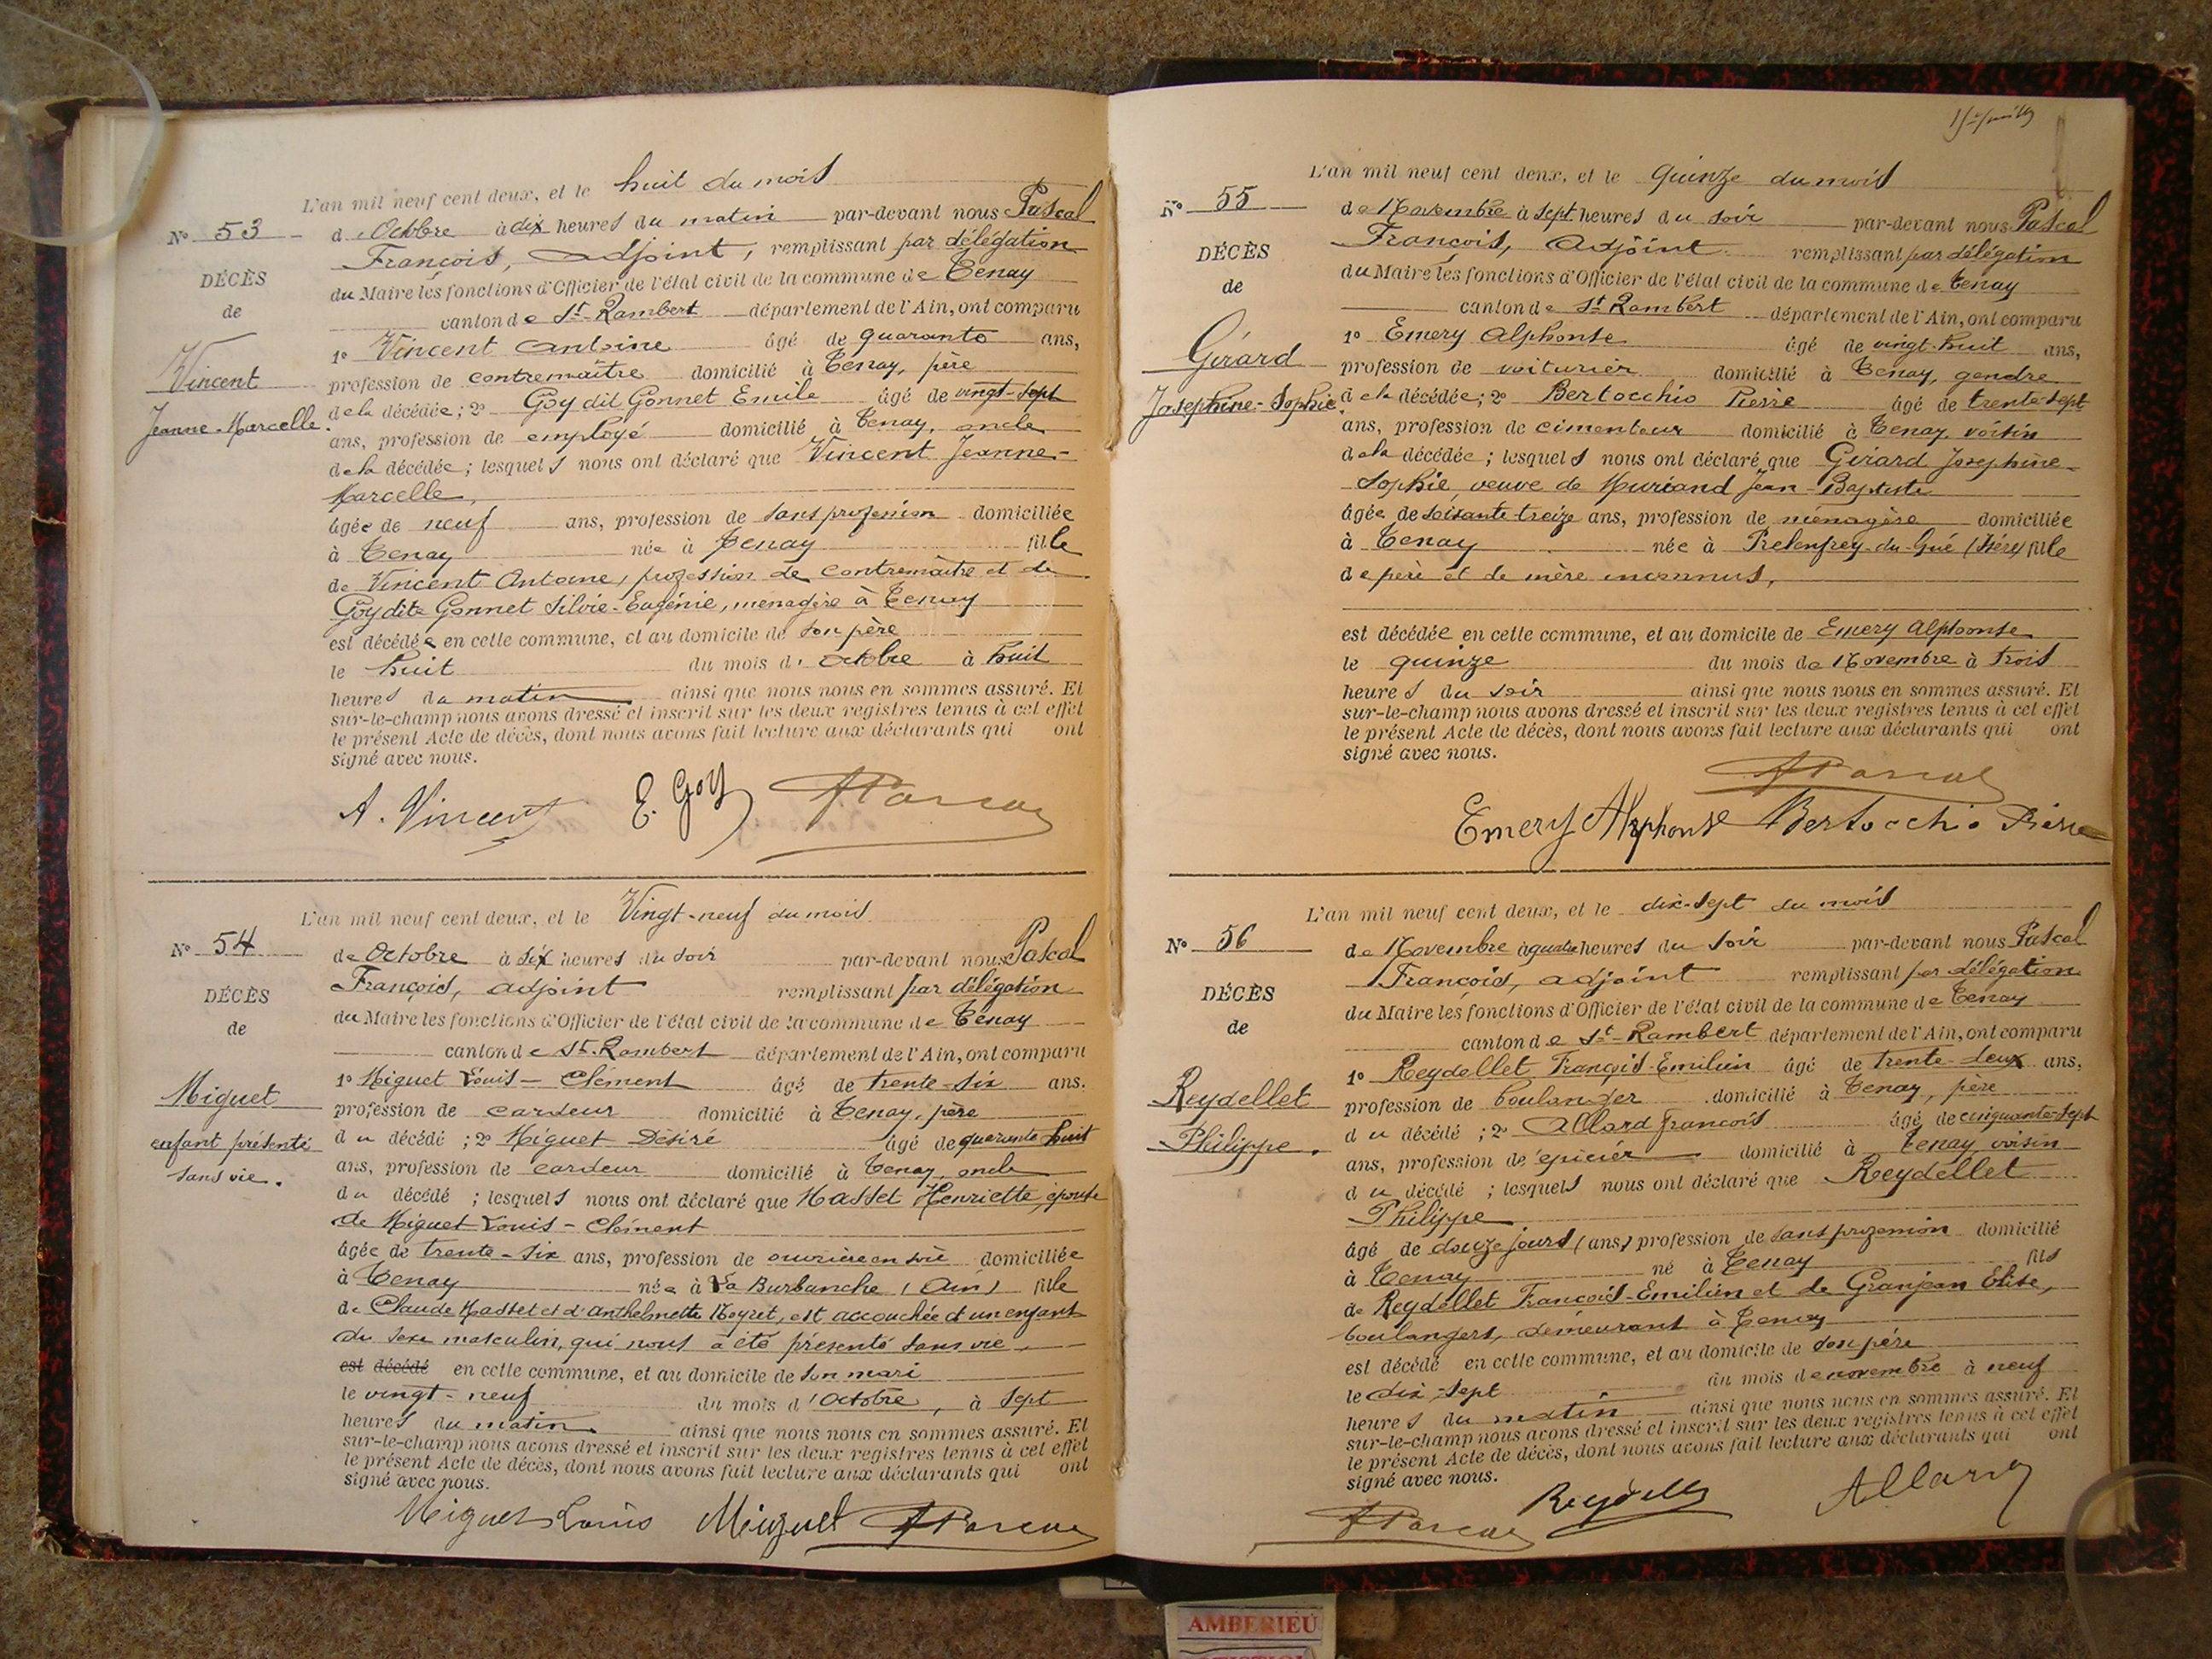 L'an mil neuf cent deux, et le huit du mois
N° 53
d'Octobre à dix heures du matin par-devant nous Pascal
François, adjoint, remplissant par délégation
DÉCÈS
du Maire les fonctions d'Officier de l'état civil de la commune de Tenay
de
canton de St-Rambert département de l'Ain, ont comparu
Vincent
1° Vincent Antoine âgé de quarante ans,
profession de contremaître domicilié à Tenay, père
Jeanne-Marcelle.
de la décédée; 2° Goy dit Gonnet Emile âgé de vingt-sept
ans, profession de employé domicilié à Tenay, oncle
de la décédée; lesquels nous ont déclaré que Vincent Jeanne-
Marcelle,
âgée de neuf ans, profession de sans profession domiciliée
à Tenay née à Tenay fille
de Vincent Antoine, profession de contremaître et de
Goy dite Gonnet Silvie-Eugénie, ménagère à Tenay
est décédée en cette commune, et au domicile de son père
le huit du mois d'octobre à huit
heures du matin ainsi que nous nous en sommes assuré. Et
sur-le-champ nous avons dressé et inscrit sur les deux registres tenus à cet effet
le présent Acte de décès, dont nous avons fait lecture aux déclarants qui ont
signé avec nous.
A. Vincent E. Goy FPascal
L'an mil neuf cent deux, et le Vingt-neuf du mois
N° 54
de Octobre à six heures du soir par-devant nous Pascal
François, adjoint remplissant par délégation
DÉCÈS
du Maire les fonctions d'Officier de l'état civil de la commune de Tenay
de
canton de St-Rambert département de l'Ain, ont comparu
Miguet
1° Miguet Louis-Clément âgé de trente-six ans.
profession de cardeur domicilié à Tenay, père
enfant présenté
du décédé; 2° Miguet Désiré âgé de quarante huit
sans vie.
ans, profession de cardeur domicilié à Tenay, oncle
du décédé; lesquels nous ont déclaré que Masset Henriette, épouse
de Miguet Louis-Clément
âgée de trente-six ans, profession de ouvrière en soie domiciliée
à Tenay née à La Burbanche (Ain) fille
de Claude Masset et d'Anthelmette Meyret, est accouchée d'un enfant
du sexe masculin, qui nous a été présenté sans vie
est décédé en cette commune, et au domicile de son mari
le vingt-neuf du mois d'Octobre, à sept
heures du matin ainsi que nous nous en sommes assuré. Et
sur-le-champ nous avons dressé et inscrit sur les deux registres tenus à cet effet
le présent Acte de décès, dont nous avons fait lecture aux déclarants qui ont
signé avec nous.
Miguet Louis Miguet FPascal
L'an mil neuf cent deux, et le quinze du mois
N° 55
de Novembre à sept heures du soir par-devant nous Pascal
François, adjoint remplissant par délégation
DÉCÈS
du Maire les fonctions d'Officier de l'état civil de la commune de Tenay
de
canton de St-Rambert département de l'Ain, ont comparu
Girard
1° Emery Alphonse âgé de vingt-huit ans,
profession de voiturier domicilié à Tenay, gendre
Joséphine-Sophie.
de la décédée; 2° Bertocchio Pierre âgé de trente-sept
ans, profession de cimenteur domicilié à Tenay, voisin
de la décédée; lesquels nous ont déclaré que Girard Joséphine-
Sophie, veuve de Muriand Jean-Baptiste
âgée de soixante-treize ans, profession de ménagère domiciliée
à Tenay née à Prelenfrey-du-Gué (Isère) fille
de père et de mère inconnus,
est décédée en cette commune, et au domicile de Emery Alphonse
le quinze du mois de Novembre à trois
heures du soir ainsi que nous nous en sommes assuré. Et
sur-le-champ nous avons dressé et inscrit sur les deux registres tenus à cet effet
le présent Acte de décès, dont nous avons fait lecture aux déclarants qui ont
signé avec nous.
FPascal
Emery Alphonse Bertocchio Pierre
L'an mil neuf cent deux, et le dix-sept du mois
N° 56
de Novembre à quatre heures du soir par-devant nous Pascal
François, adjoint remplissant par délégation
DÉCÈS
du Maire les fonctions d'Officier de l'état civil de la commune de Tenay
de
canton de St-Rambert département de l'Ain, ont comparu
Reydellet
1° Reydellet François-Emilien âgé de trente-deux ans,
profession de boulanger domicilié à Tenay, père
Philippe.
du décédé; 2° Allard François âgé de cinquante-sept
ans, profession de épicier domicilié à Tenay voisin
du décédé; lesquels nous ont déclaré que Reydellet
Philippe
âgé de douze jours (ans) profession de sans profession domicilié
à Tenay né à Tenay fils
de Reydellet François-Emilien et de Granjean Elise,
boulangers, demeurant à Tenay
est décédé en cette commune, et au domicile de son père
le dix-sept du mois de novembre à neuf
heures du matin ainsi que nous nous en sommes assuré. Et
sur-le-champ nous avons dressé et inscrit sur les deux registres tenus à cet effet
le présent Acte de décès, dont nous avons fait lecture aux déclarants qui ont
signé avec nous.
FPascal Reydellet Allard
AMBERIEU